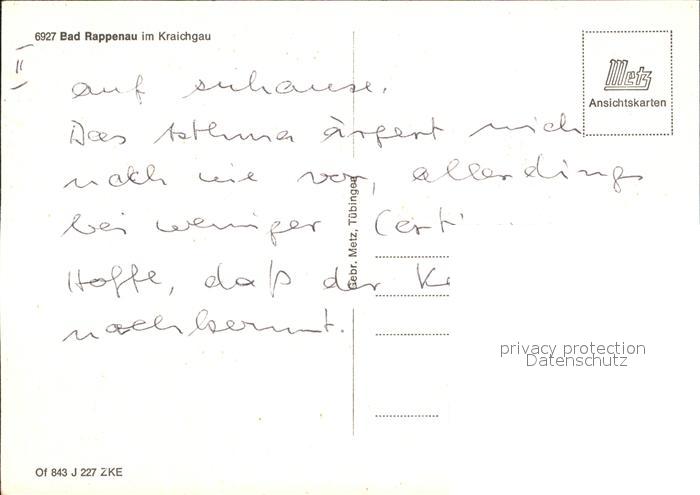 6927 Bad Rappenau im Kraichgau
II
Metz
Ansichtskarten
auf zuhause.
Das Asthma ärgert mich
nach wie vor, allerdings
bei weniger Corti
Hoffe, daß der K
nachkommt.
Gebr. Metz, Tübingen
privacy protection
Datenschutz
Of 843 J 227 ZKE